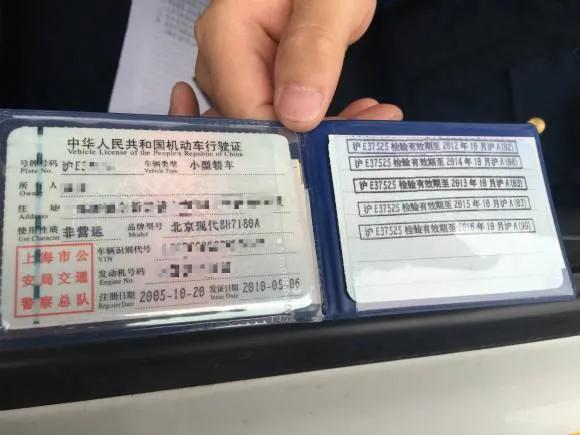 中华人民共和国机动车行驶证
Vehicle License of the People's Republic of China
号牌号码 沪E 车辆类型 小型轿车
Plate No. Vehicle Type
所有人
Owner
住址
Address
使用性质 非营运 品牌型号 北京现代BH7180A
Use Character
上海市公安局交通警察总队
车辆识别代号
VIN
发动机号码
Engine No.
注册日期 2005-10-20 发证日期 2010-05-06
Register Date Issue Date
沪E37525 检验有效期至2012年10月沪A(02)
沪E37525 检验有效期至2014年10月沪A
沪E37525 检验有效期至2013年10月沪A(03)
沪E37525 检验有效期至2015年10月沪A(03)
沪E37525 检验有效期至2016年10月沪A